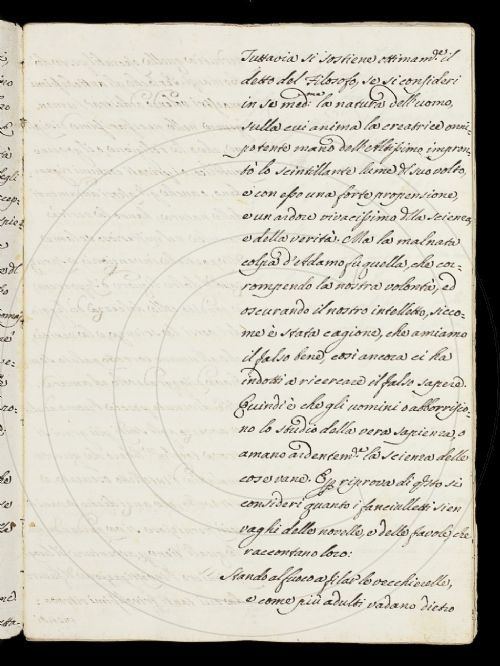 Tuttavia si sostiene ottimam.te il
detto del Filosofo, se si consideri
in se med.ma la natura dell'uomo,
sulla cui anima la creatrice onni-
potente mano dell'Altissimo impron-
tò lo scintillante lume del suo volto,
e con esso una forte propensione,
e un ardore vivacissimo della scienza,
e della verità. Ma la malnata
colpa d'Adamo fu quella, che cor-
rompendo la nostra volontà, ed
oscurando il nostro intelletto, sico-
me è stata cagione, che amiamo
il falso bene, così ancora ci ha
indotti a ricercare il falso sapere.
Quindi è che gli uomini o abborrisco-
no lo studio della vera sapienza, o
amano ardentem.te la scienza delle
cose vane. Per riprova di q.sto si
consideri quanto i fanciulletti sien
vaghi delle novelle, e delle favole, che
raccontano loro:
Stando al fuoco a filar le vecchierelle,
e come più adulti vadano dietro